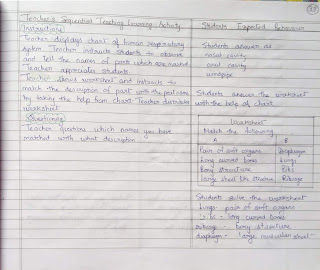 Teacher's Sequential Teaching Learning Activity
Students Expected Behaviour
Instructions:
Teacher displays chart of human respiratory
System Teacher instructs students to observe
and tell the names of parts which are marked
Teacher appreciates students.
Teacher shows worksheet and instructs to
match the description of part with the part name
by taking the help from chart Teacher distributes
worksheet
Questioning
Teacher questions which names you have
matched with what description
Students answers as
nasal cavity
oral cavity
windpipe
Students answers the worksheet
with the help of chart
Worksheet
Match the following
A B
Pair of soft organs Diaphragm
Long curved bones Lungs
Bony structure Ribs
Large sheet like structure Ribcage
Students solve the worksheet
Lungs - pair of soft organs
Ribs - long curved bones
ribcage - bony structure
diaphragm - large muscular sheet